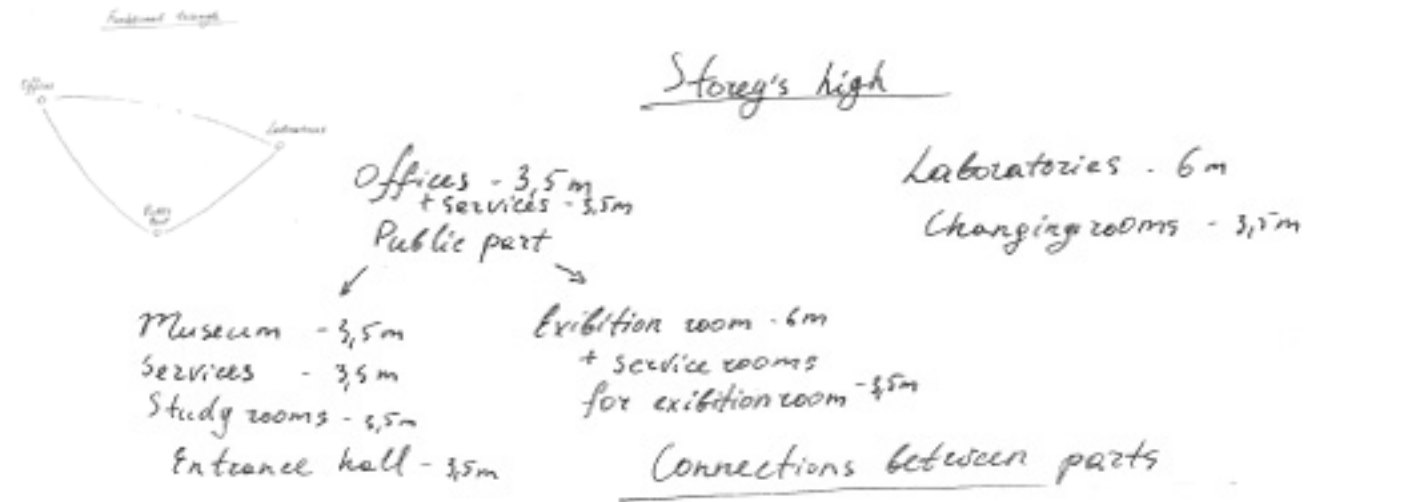 Functional triangle
Offices
Laboratories
Public part
Storey's high
Offices - 3,5 m
+ services - 3,5m
Public part
Laboratories - 6 m
Changing rooms - 3,5m
Museum - 3,5 m
Services - 3,5 m
Study rooms - 3,5m
Entrance hall - 3,5m
Exibition room - 6m
+ service rooms
for exibition room - 3,5m
Connections between parts